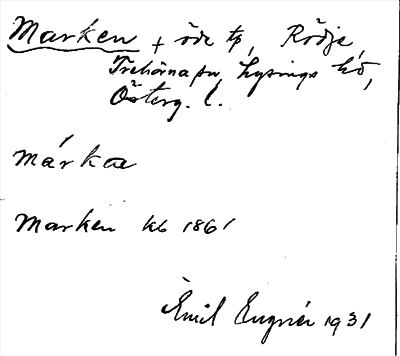 Marken + öde tp, Rödje,
Trehörna sn, Lysings hd,
Österg. l.
márkae
Marken kb 1861
Emil Engnér 1931